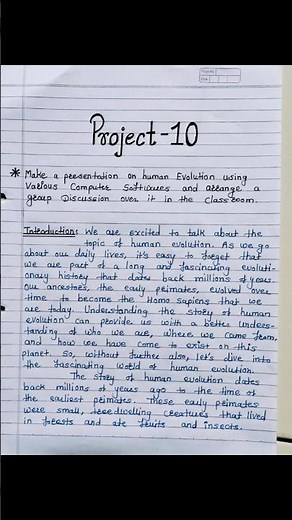 Project-10
* Make a presentation on human Evolution using
Various Computer Softwares and arrange a
group Discussion over it in the Classroom.
Introduction: We are excited to talk about the
topic of human evolution. As we go
about our daily lives, it's easy to forget that
we are part of a long and fascinating evoluti-
onary history that dates back millions of years.
Our ancestors, the early primates, evolved over
time to become the Homo sapiens that we
are today. Understanding the story of human
evolution can provide us with a better unders-
tanding of who we are, where we came from,
and how we have come to exist on this
planet. So, without further also, let's dive into
the fascinating world of human evolution.
The story of human evolution dates
back millions of years ago to the time of
the earliest primates. These early primates
were small, tree dwelling creatures that lived
in forests and ate fruits and insects.